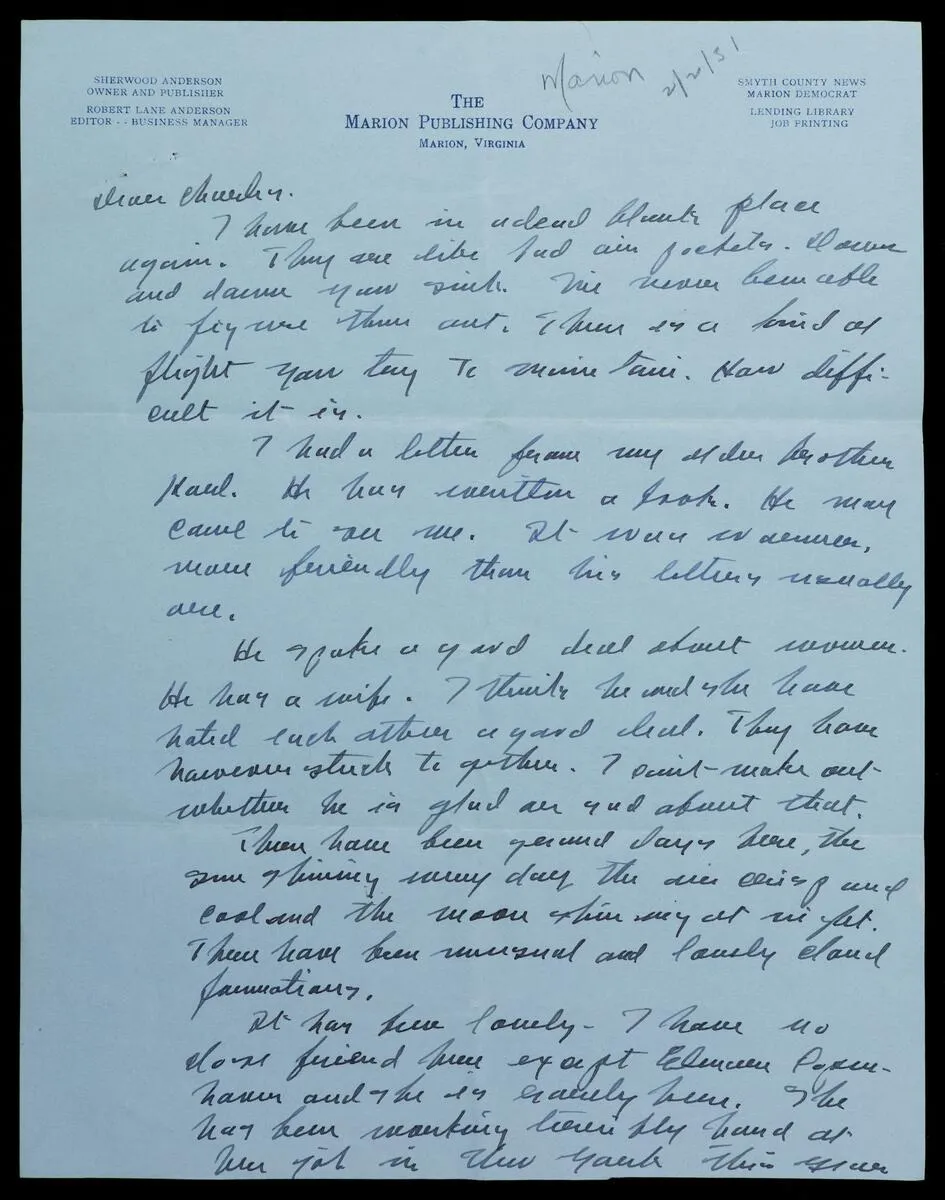 Marion
2/2/31
SHERWOOD ANDERSON
OWNER AND PUBLISHER
ROBERT LANE ANDERSON
EDITOR - - BUSINESS MANAGER
THE
MARION PUBLISHING COMPANY
MARION, VIRGINIA
SMYTH COUNTY NEWS
MARION DEMOCRAT
LENDING LIBRARY
JOB PRINTING
Dear Charles.
I have been in a dead blank place
again. They are like bad air pockets. Down
and down you sink. I've never been able
to figure them out. There is a kind of
flight you try to maintain. How diffi-
cult it is.
I had a letter from my older brother
Karl. He has written a book. He may
come to see me. It was warmer,
more friendly than his letters usually
are.
He spoke a good deal about women.
He has a wife. I think he and she have
hated each other a good deal. They have
however stuck together. I can't make out
whether he is glad or sad about that.
There have been grand days here, the
sun shining every day the air crisp and
cool and the moon shining at night.
There have been unusual and lovely cloud
formations.
It has been lonely - I have no
close friend here except Eleanor Copen-
haver and she is rarely here. She
has been working terribly hard at
her job in New York this year